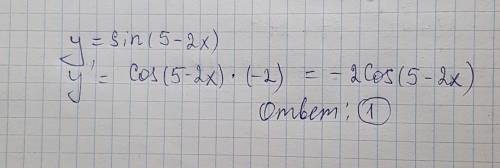 y = sin(5-2x)
y' = cos(5-2x)·(-2) = -2cos(5-2x)
Ответ: 1